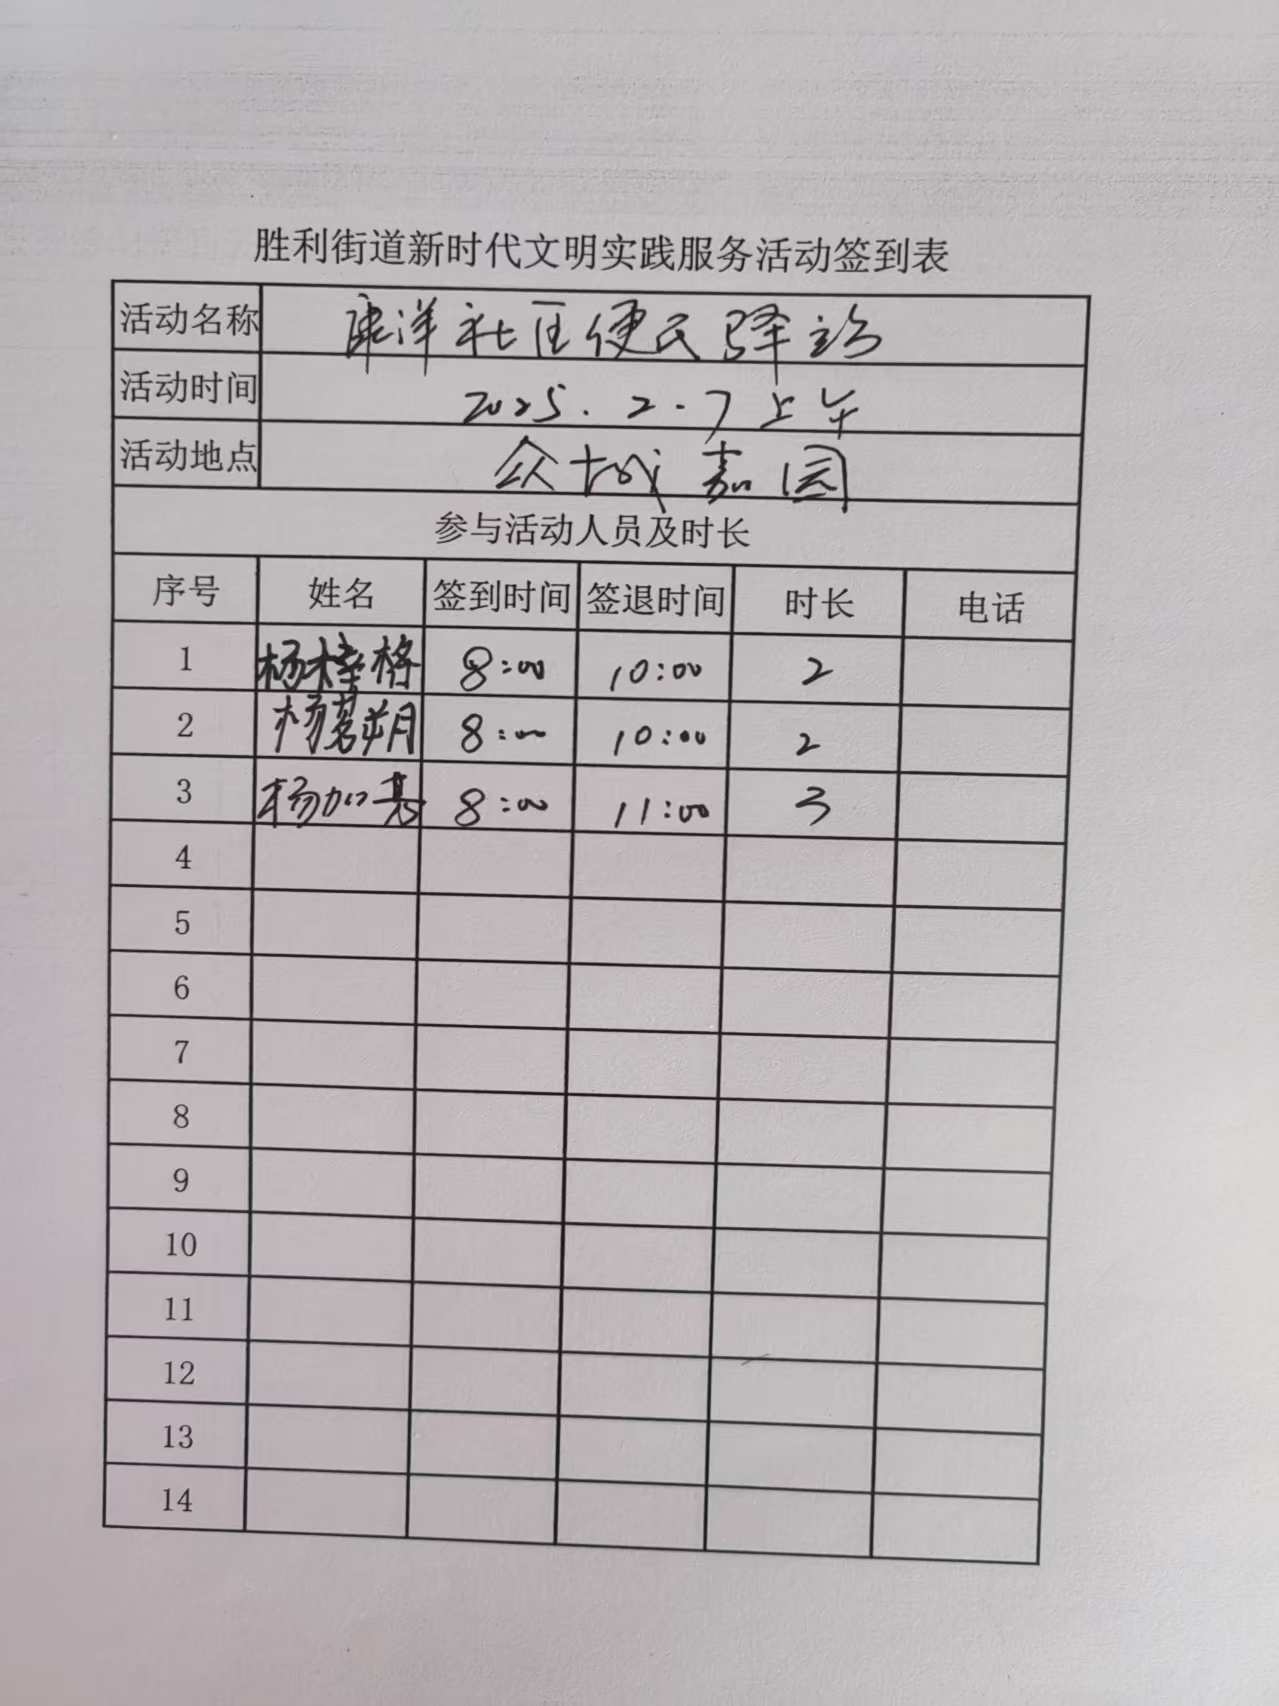 胜利街道新时代文明实践服务活动签到表
活动名称 康洋社区便民驿站
活动时间 2025.2.7上午
活动地点 众城嘉园
参与活动人员及时长
序号 姓名 签到时间 签退时间 时长 电话
1 杨梓格 8:00 10:00 2
2 杨茗朔 8:00 10:00 2
3 杨加 8:00 11:00 3
4
5
6
7
8
9
10
11
12
13
14